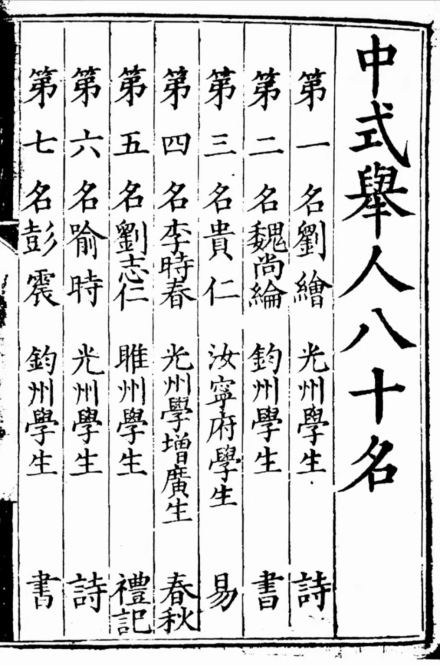 中式舉人八十名
第一名劉繪 光州學生 詩
第二名魏尚綸 鈞州學生 書
第三名貴仁 汝寧府學生 易
第四名李時春 光州學增廣生 春秋
第五名劉志仁 睢州學生 禮記
第六名喻時 光州學生 詩
第七名彭震 鈞州學生 書